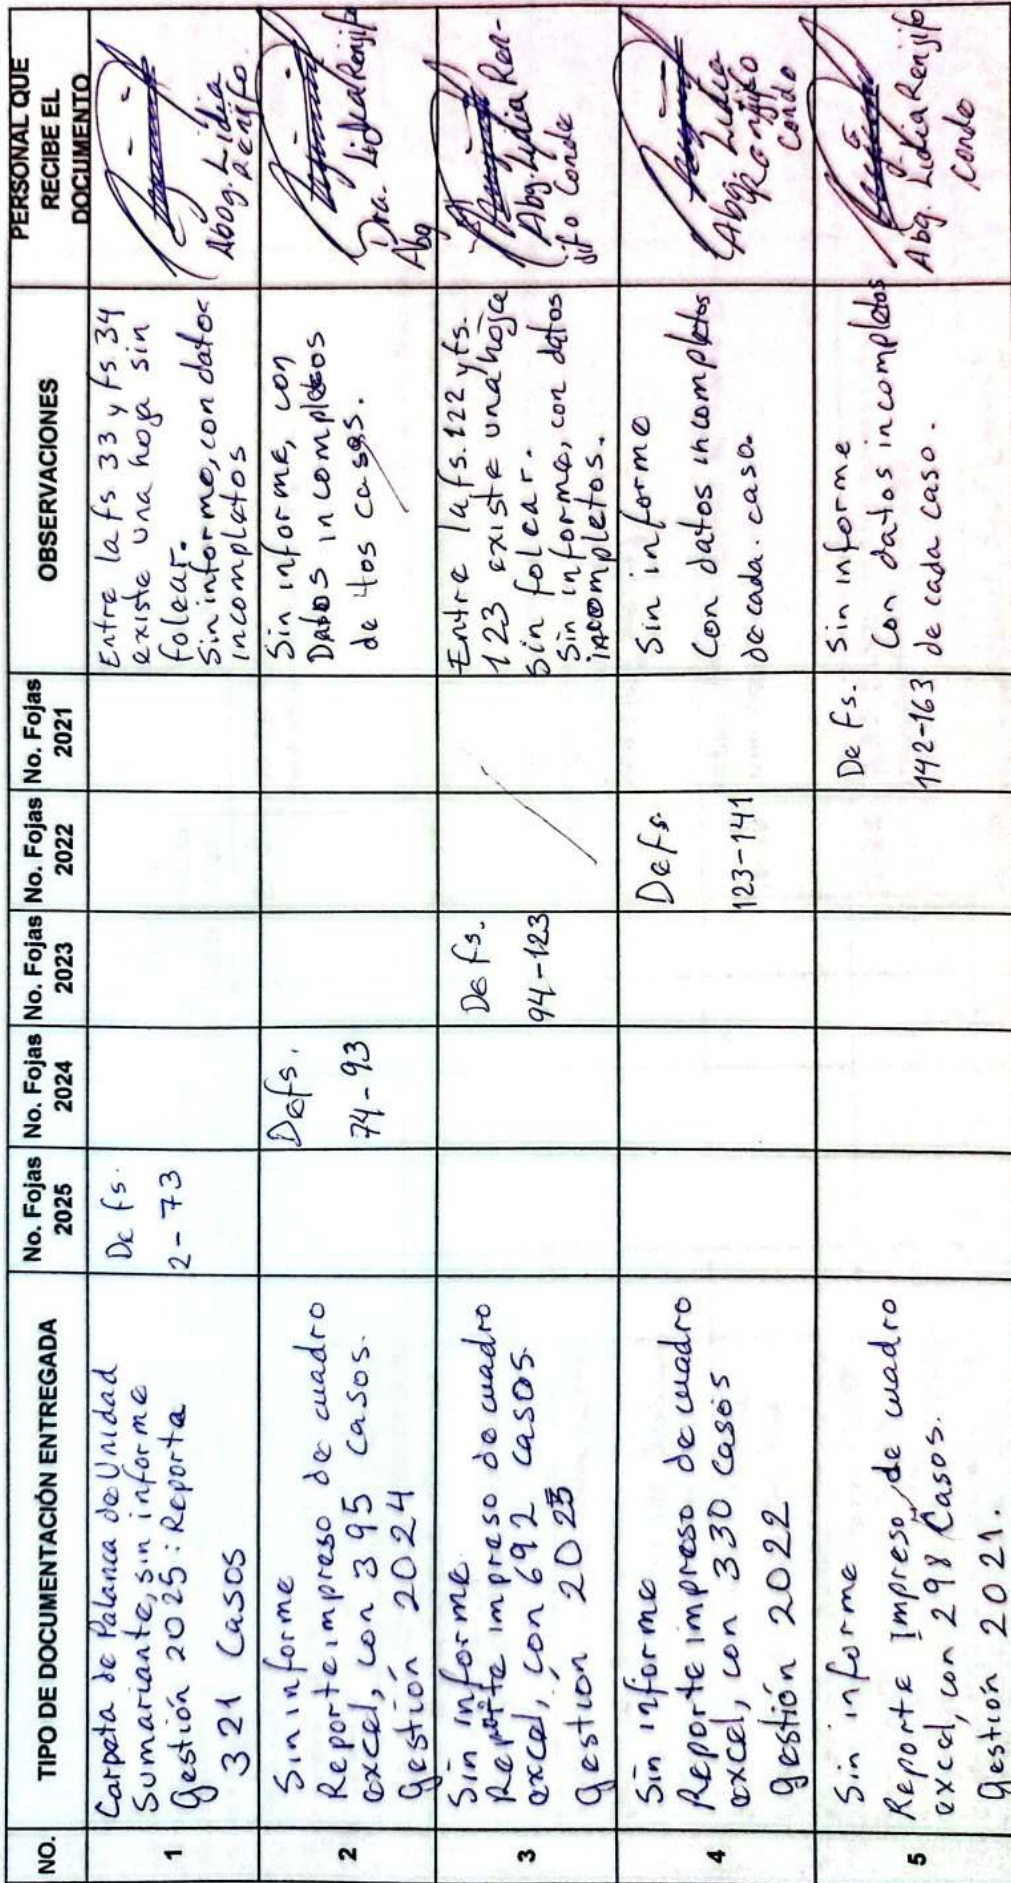 NO.
TIPO DE DOCUMENTACIÓN ENTREGADA
No. Fojas
2025
No. Fojas
2024
No. Fojas
2023
No. Fojas
2022
No. Fojas
2021
OBSERVACIONES
PERSONAL QUE
RECIBE EL
DOCUMENTO
1
Carpeta de Palanca de Unidad
Sumariante, sin informe
Gestión 2025: Reporta
321 Casos
De fs.
2-73
Entre la fs 33 y fs. 34
existe una hoja sin
folear.
Sin informe, con datos
incompletos
Abog. Lidia
Renjifo
2
Sin informe
Reporte impreso de cuadro
excel, con 395 casos.
Gestión 2024
De fs.
74-93
Sin informe, con
Datos incompletos
de los casos.
Dra. Lidia Renjifo
Abg
3
Sin informe.
Reporte impreso de cuadro
excel, con 692 casos.
Gestion 2023
De fs.
94-123
Entre la fs. 122 y fs.
123 existe una hojce
sin folear.
Sin informe, con datos
incompletos.
Abg. Lydia Ren-
jifo Conde
4
Sin informe
Reporte impreso de cuadro
excel, con 330 casos
Gestión 2022
De fs.
123-141
Sin informe
Con datos incompletos
de cada. caso.
Abg. Lidia
Renjifo
Conde
5
Sin informe
Reporte Impreso de cuadro
excel, con 298 Casos.
Gestión 2021.
De fs.
142-163
Sin informe
Con datos incompletos
de cada caso.
Abg. Lidia Renjifo
Conde